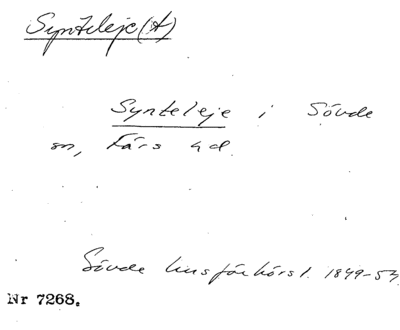 Synteleje (t)
Synteleje i Sövde
sn, Färs hd.
Sövde husförhörsl. 1849-53.
Nr 7268.